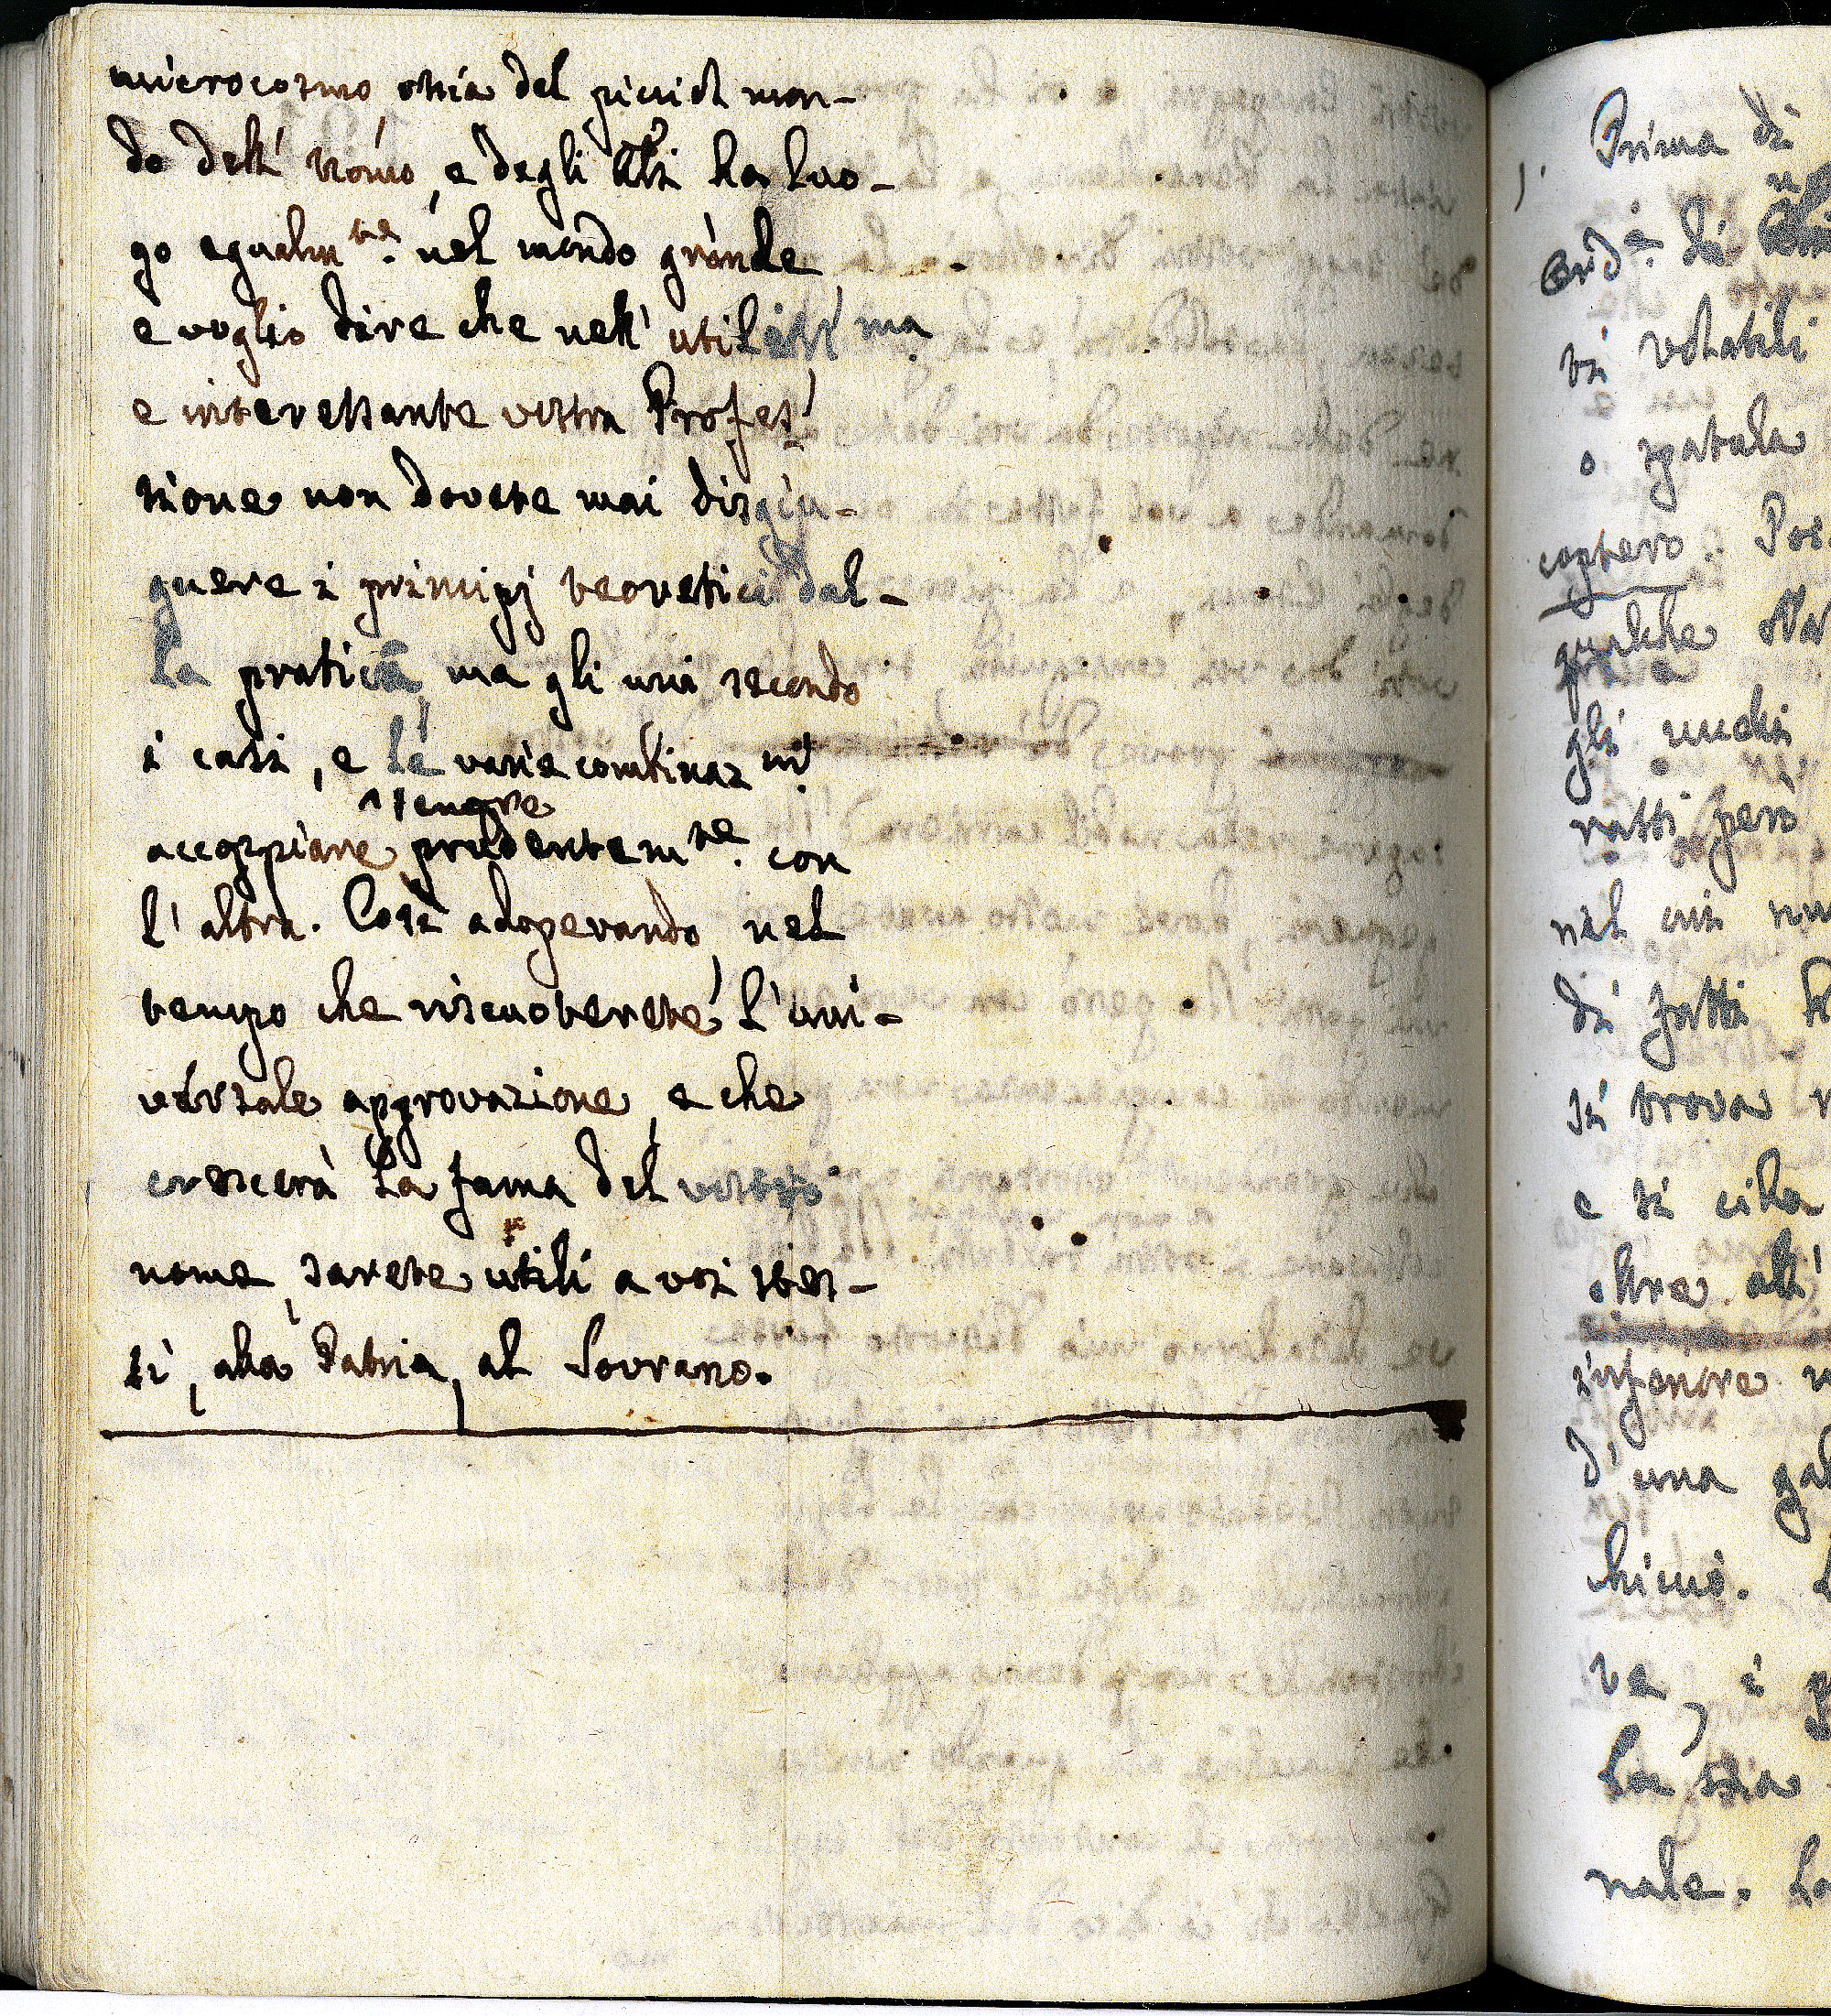 microcosmo ossia del picciol mon-
do dell' Uomo, e degli altri ha luo-
go egualmte. nel mondo grande
e voglio dire che nell' utilissma
e interessante vostra Profes-
sione non dovete mai disgiu-
gnere i principj teoretici dal-
la pratica, ma gli uni secondo
i casi, e le varie combinazni
sempre
accoppiare prudentemte. con
l'altra. Così adoperando, nel
tempo che riscuoterete l'uni-
versale approvazione, e che
crescerà la fama del vostro
nome, sarete utili a voi stes-
si, alla Patria, al Sovrano.
1. Prima di
Ord.e di
ti volatili
o
coptero. Pos
qualche
gli uncini
ratti però
nel cui
di fatti
si trova
e si ciba
oltre all'
inferiore
d'una
chicus.
va, i
la
nale.